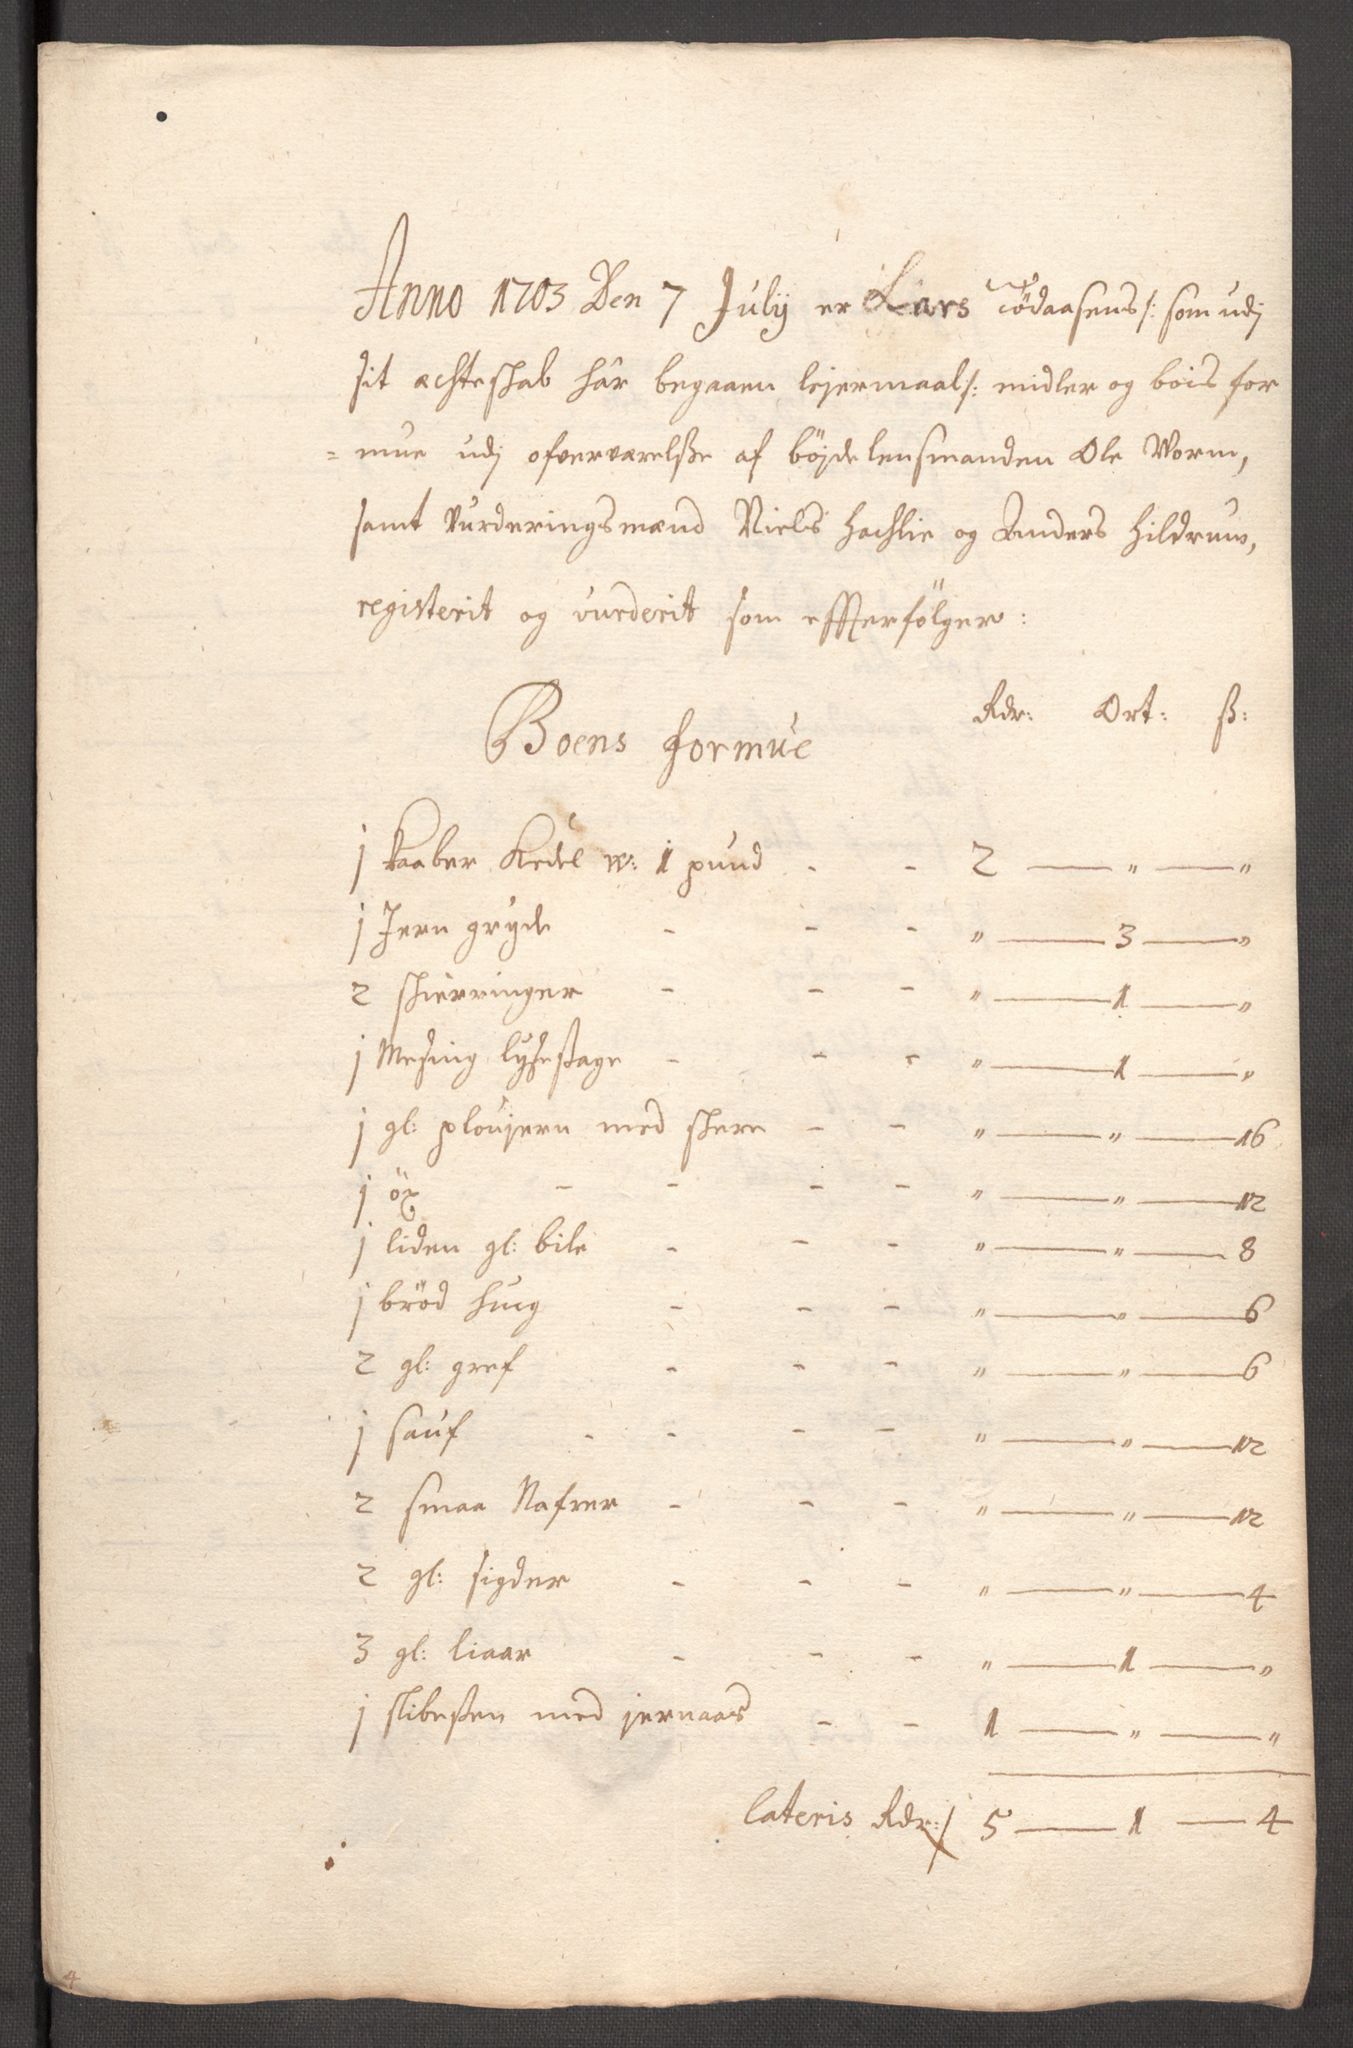 Anno 1703 Den 7 Julij er Lars rödaasens /: som udj
sit achteskab hâr begaaen lejermaal /: midler og bois for
= mue udj ofverværelsße af böjdelensmanden Ole Worm,
samt Vurderingsmænd Niels hachlie og Anders Hildrum,
registerit og vurderit som effterfölger :
Rdr: Ort: ß:
Boens formue
1 kaaber Kedel w: 1 pund - - 2 — " — "
1 Jern gryde - - - " — 3 — "
2 skierringer - - - " — 1 — "
1 Meßing lyßestage - - - " — 1 — "
1 gl: plovjern med skere - - " — " — 16
1 öx - - - - " — " — 12
1 liden gl: bile - - - " — " — 8
1 bröd hueg - - - " — " — 6
2 gl: gref - - - " — " — 6
1 sauf - - - - " — " — 12
2 smaa Nafrer - - - " — " — 12
2 gl: sigder - - - " — " — 4
3 gl: liaar - - - " — 1 — "
1 slibesten med jernaas - - 1 — " — "
lateris Rdr: / 5 — 1 — 4
4